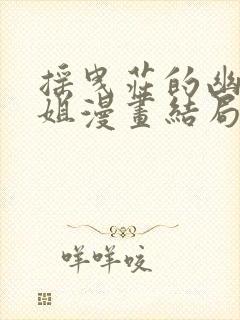 採曳莊的幽
姐漫畫結局
咩咩咬